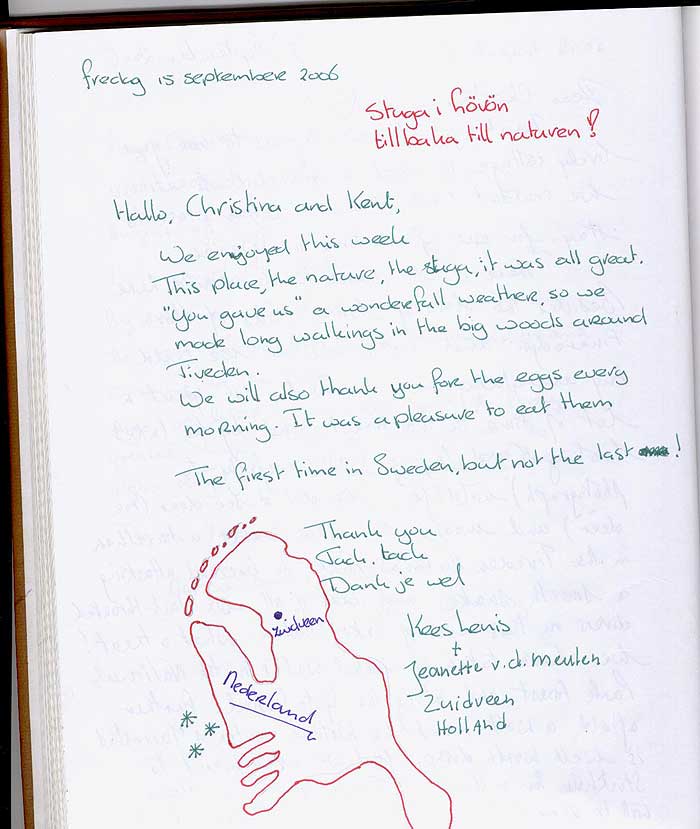 fredag 15 septembere 2006
Stuga i hövön
tillbaka till naturen!
Hallo, Christina and Kent,
We enjoyed this week
This place, the nature, the stuga, it was all great.
"You gave us" a wonderfull weather, so we
made long walkings in the big woods around
Tiveden.
We will also thank you fore the eggs every
morning. It was a pleasure to eat them
The first time in Sweden, but not the last !
Thank you
Tack. tack
Dank je wel
Zuidveen
Kees
+
Jeanette v.d. meulen
Nederland
Zuidveen
Holland